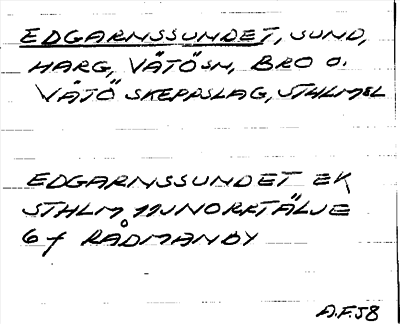 EDGARNSSUNDET, SUND,
HARG, VÄTÖSN, BRO O.
VÄTÖ SKEPPSLAG, STHLMSL
EDGARNSSUNDET EK
STHLM 11J NORRTÄLJE
6 f RÅDMANBY
A.F.58